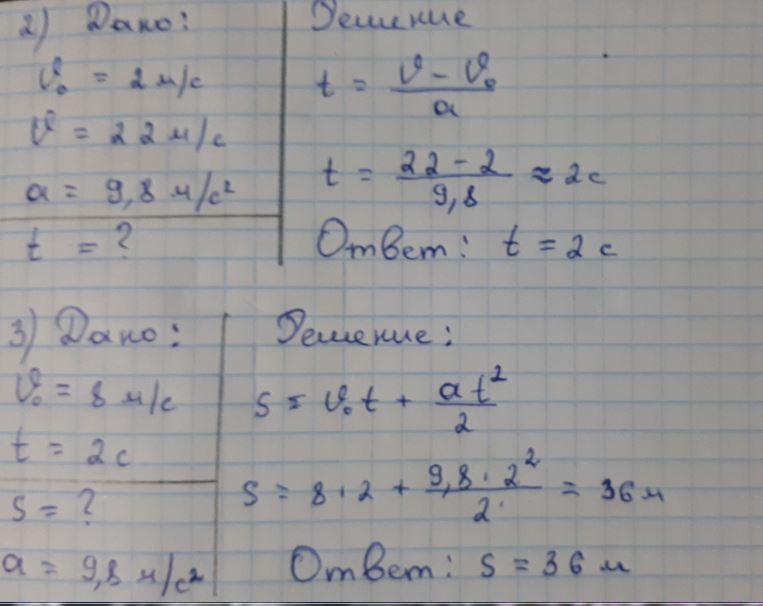 2) Дано:
v₀ = 2 м/с
v = 22 м/с
a = 9,8 м/с²
t = ?
Решение
t = (v - v₀)/a
t = (22 - 2)/9,8 ≈ 2с
Ответ: t = 2 с
3) Дано:
v₀ = 8 м/с
t = 2с
s = ?
a = 9,8 м/с²
Решение:
s = v₀t + at²/2
s = 8 · 2 + (9,8 · 2²)/2 = 36 м
Ответ: s = 36 м